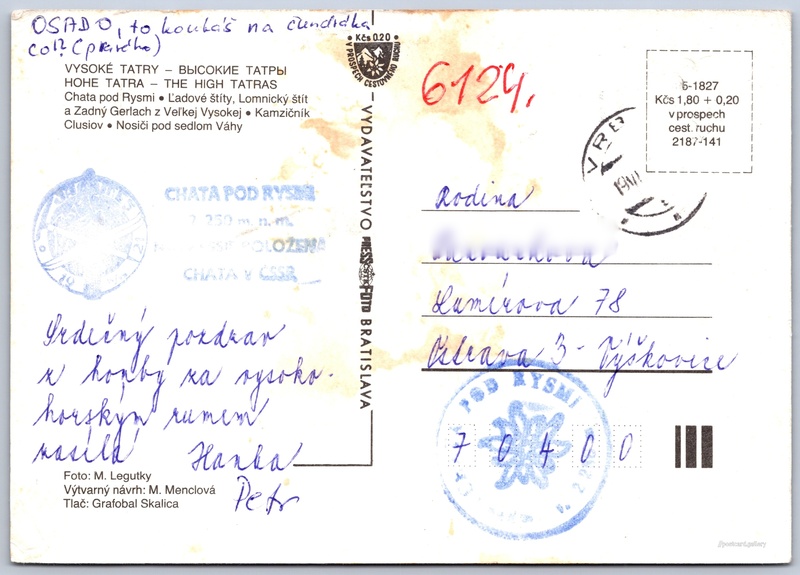 OSADO, to koukáš na čundrdka
co!? (pravého)
Kčs 0.20
V PROSPECH CESTOVNÉHO RUCHU
VYSOKÉ TATRY – ВЫСОКИЕ ТАТРЫ
HOHE TATRA – THE HIGH TATRAS
Chata pod Rysmi • Ľadové štíty, Lomnický štít
a Zadný Gerlach z Veľkej Vysokej • Kamzičník
Clusiov • Nosiči pod sedlom Váhy
CHATA POD RYSMI
2 250 m. n. m.
POLOŽENÁ
CHATA V ČSSR
Srdečný pozdrav
z honby za vysoko-
horským rumem
zasílá Hanka
Petr
Foto: M. Legutky
Výtvarný návrh: M. Menclová
Tlač: Grafobal Skalica
VYDAVATEĽSTVO PRESSFOTO BRATISLAVA
6124.
6-1827
Kčs 1,80 + 0,20
v prospech
cest. ruchu
2187-141
VRB
Rodina
Lumírova 78
Ostrava 3 - Výškovice
POD RYSMI
7 0 4 0 0
postcard.gallery